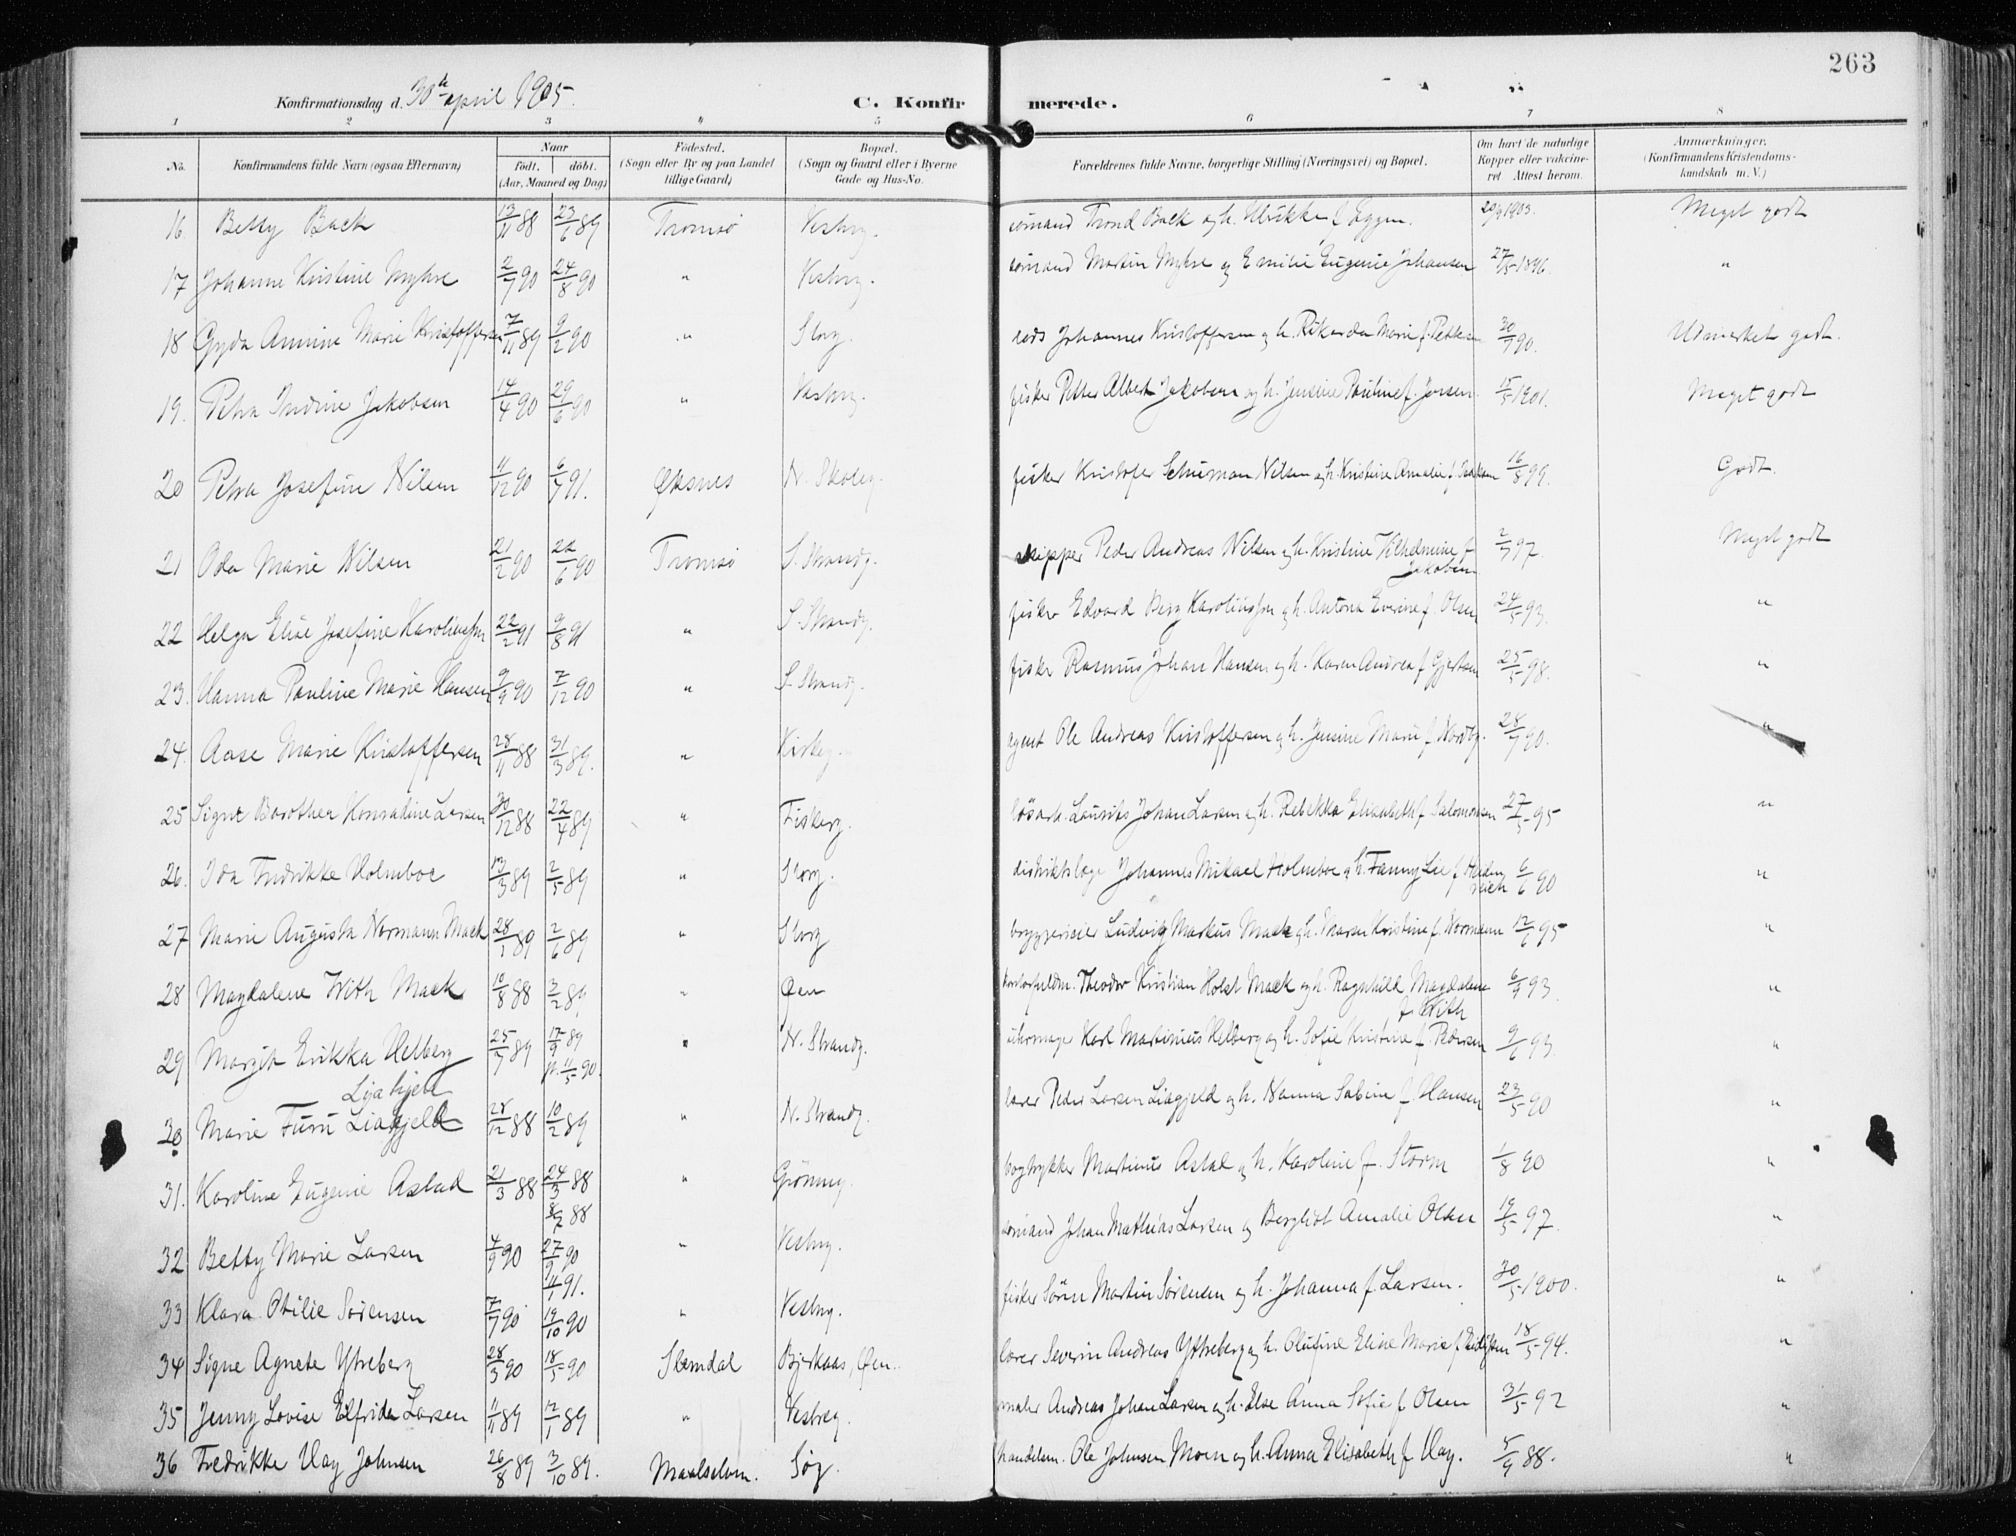 263
Konfirmationsdag d. 30th april 1905.
C. Konfirmerede.
1 2 3 4 5 6 7 8
No. Konfirmandens fulde Navn (ogsaa Efternavn) Naar født. døbt. (Aar, Maaned og Dag) Fødested. (Sogn eller By og paa Landet tillige Gaard) Bopæl. (Sogn og Gaard eller i Byerne Gade og Hus-No. Forældrenes fulde Navne, borgerlige Stilling (Næringsvei) og Bopæl. Om havt de naturlige Kopper eller vaccineret Attest herom. Anmærkninger. (Konfirmandens Kristendomskundskab m. V.)
16. Betty Back 13/11 88 23/6 89 Tromsø Vestrg. sømand Trond Back og h. Ulrikke f. Eggen. 1903. Meget godt
17 Johanne Kristine Myhre 2/7 90 24/8 90 " Vestrg. sømand Martin Myhre og Emilie Eugenie Johansen 1896. "
18 Gyda Annine Marie Kristoffersen 7/11 89 9/2 90 " Storg. lods Johannes Kristoffersen og h. Rikarda Marie f. Pettersen 30/9 90. Udmerket godt.
19. Petra Indine Jakobsen 14/4 90 29/6 90 " Vestrg. fisker Petter Albert Jakobsen og h. Jensine Pauline f. Jensen. 15/5 1901. Meget godt
20 Petra Josefine Nilsen 11/12 90 6/7 91. Øksnes N. Skoleg. fisker Kristofer Schuman Nilsen og h. Kristine Amalie f. Isaksen 16/8 99. Godt.
21 Oda Marie Nilsen 21/2 90 22/6 90 Tromsø S. Strandg. skipper Peder Andreas Nilsen og h. Kristine Vilhelmine f. Jakobsen 2/7 97. Meget godt
22 Helga Elise Josefine Karoliussen 22/2 91 9/8 91 " S. Strandg. fisker Edvard Berg Karoliussen og h. Antona Everine f. Olsen 24/5 93. "
23. Hanna Pauline Marie Hansen 9/9 90 7/12 90 " S. Strandg. fisker Rasmus Johan Hansen og h. Karen Andrea f. Gjertsen 25/5 98. "
24. Aase Marie Kristoffersen 28/11 88 31/3 89. " Kirkeg. agent Ole Andreas Kristoffersen og h. Jensine Marie f. Nordby. 28/7 90. "
25 Signe Dorothea Konradine Larsen 30/12 88 22/4 89 " Fiskerg. løsarb. Laurits Johan Larsen og h. Rebekka Elisabeth f. Salomonsen 27/5 95 "
26. Ida Fredrikke Holmboe 13/3 89 2/5 89 " Storg. distriktslæge Johannes Mikael Holmboe og h. Fanny Lie f. Heidenreich 6/6 90 "
27 Marie Augusta Normann Mack 28/1 89 2/6 89 " Storg bryggerieier Ludvig Markus Mack og h. Maren Kristine f. Normann 12/6 95 "
28 Magdalene With Mack 10/8 88 3/2 89 " Øen Theodor Kristian Holst Mack og h. Ragnhild Magdalene f. With 6/9 93. "
29 Margit Erikka Helberg 25/7 89 17/9 89 p. 11/5 90. " N. Strandg. uhrmager Karl Martinius Helberg og h. Sofie Kristine f. Pedersen 9/6 93. "
Liakjeld
30 Marie Furu Liagjeld 28/12 88 10/2 89 " N. Strandg. lærer Peder Larsen Liagjeld og h. Nanna Sabine f. Hansen 23/5 90 "
31. Karoline Eugenie Astad 21/3 88 24/3 88 8/7 88 " Grønneg. bogtrykker Martinus Astad og h. Karoline f. Storm 1/8 90 "
32 Betty Marie Larsen 4/9 90 27/9 90 11/1 91. " Vestrg. sømand Johan Mathias Larsen og Bergliot Amalie Olsen 19/5 97. "
33 Klara Otilie Sørensen 7/7 90 19/10 90 " Vestrg. fisker Søren Martin Sørensen og h. Johanna f. Larsen. 30/5 1900. "
34 Signe Agnete Ytreberg 28/3 90 18/5 90 Stemdal Bjerkaas, Øen. lærer Severin Andreas Ytreberg og h. Olufine Eline Marie f. 18/5 94. "
35 Jenny Lovise Elfrida Larsen 11/11 89 12/1 89 " Vestreg. maler Andreas Johan Larsen og h. Else Anna Sofie f. Olsen 31/5 92 "
36 Fredrikke Vaag Johnsen 26/8 89 3/10 89. Maalselven. Søg. handelsm. Ole Johnsen Moen og h. Anna Elisabeth f. Vaag. 5/9 88. "